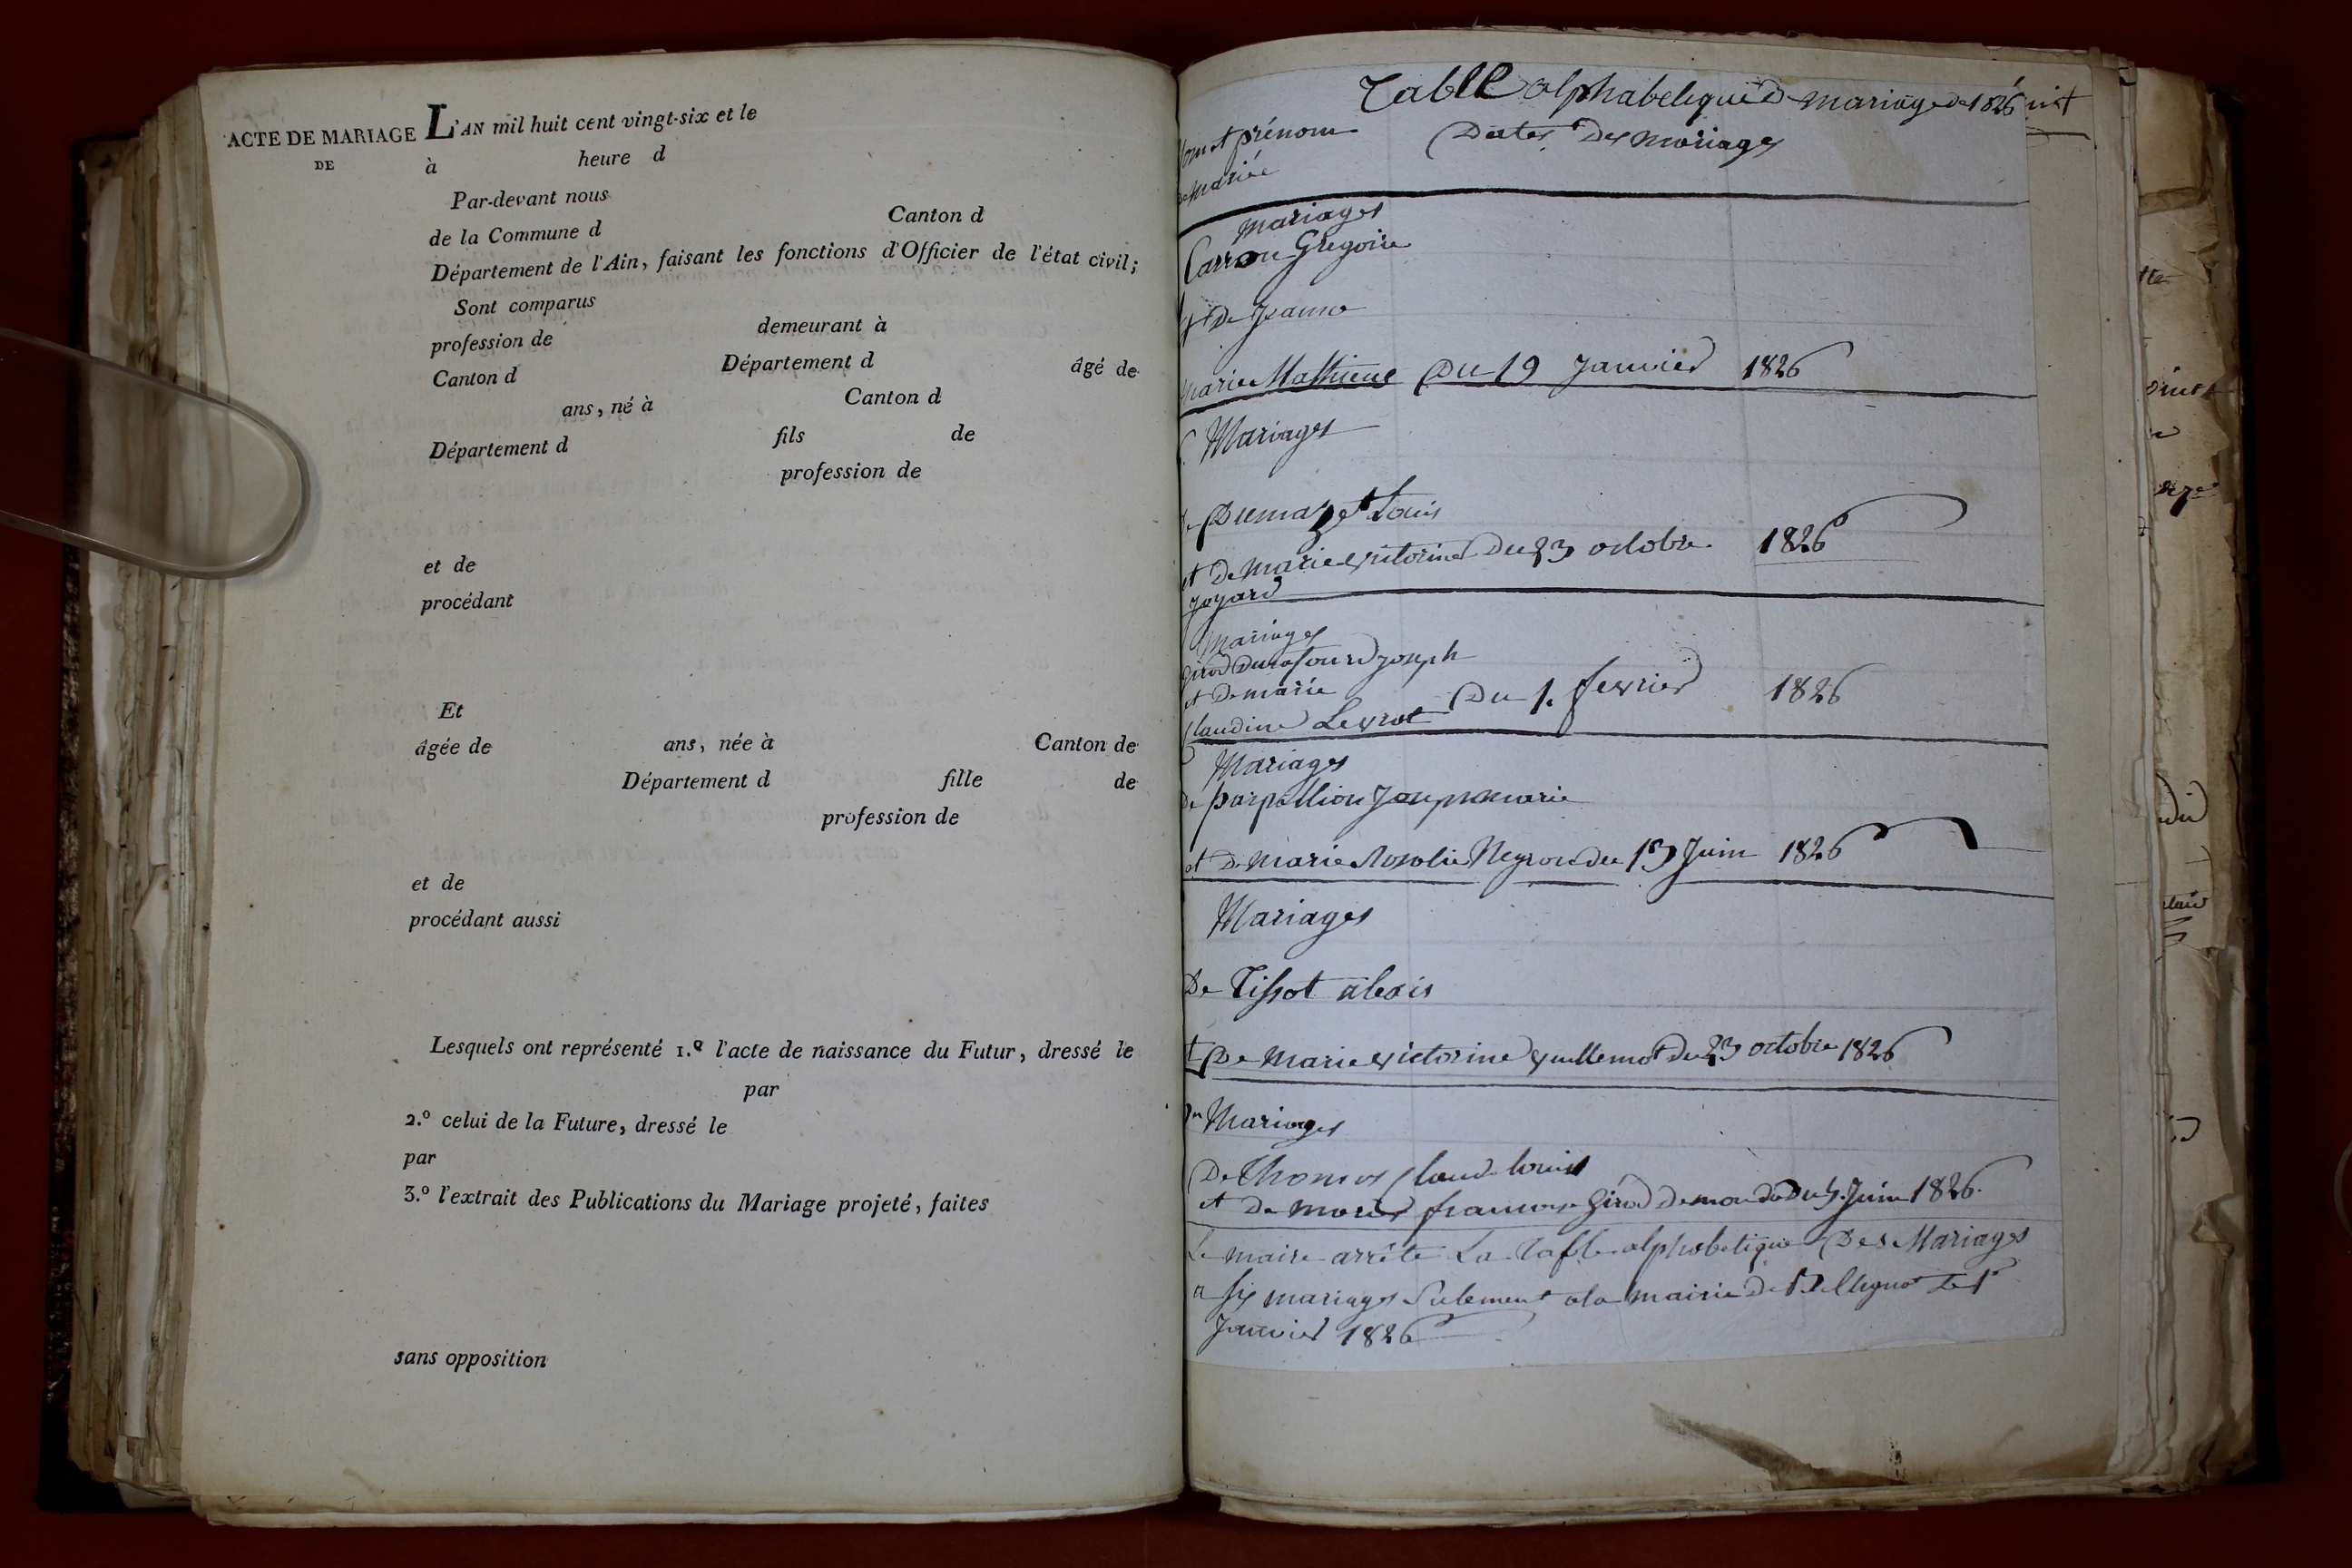 ACTE DE MARIAGE L'AN mil huit cent vingt-six et le
DE à heure d
Par-devant nous
de la Commune d Canton d
Département de l'Ain, faisant les fonctions d'Officier de l'état civil;
Sont comparus
profession de demeurant à
Canton d Département d âgé de
ans, né à Canton d
Département d fils de
profession de
et de
procédant
Et
âgée de ans, née à Canton de
Département d fille de
profession de
et de
procédant aussi
Lesquels ont représenté 1.º l'acte de naissance du Futur, dressé le
par
2.º celui de la Future, dressé le
par
3.º l'extrait des Publications du Mariage projeté, faites
sans opposition
Table alphabetique de mariage de 1826
nom et prénom Dates Des mariages
de mariée
Mariages
Carron Gregoire
et De Jeanne
marie Mathieue Du 19 Janvier 1826
Mariages
De Dumazet Louis
et De marie victorine Du 23 octobre 1826
Joyard
Mariages
Girod Dunafour Joseph
et De marie
Claudine Levrat Du 1. fevrier 1826
Mariages
De parpillion Joseph marie
et De marie Rosalie Neyron du 13 Juin 1826
Mariages
De Tissot alexis
et De Marie victorine vuillemot Du 23 octobre 1826
Mariages
De Thomas Claud louis
et De marie francoise Girod Demonda Du 5. Juin 1826.
Le maire arrête La Table alphabetique Des Mariages
a six mariages Sulement a la mairie de Belleydoux Le 1er
Janvier 1826